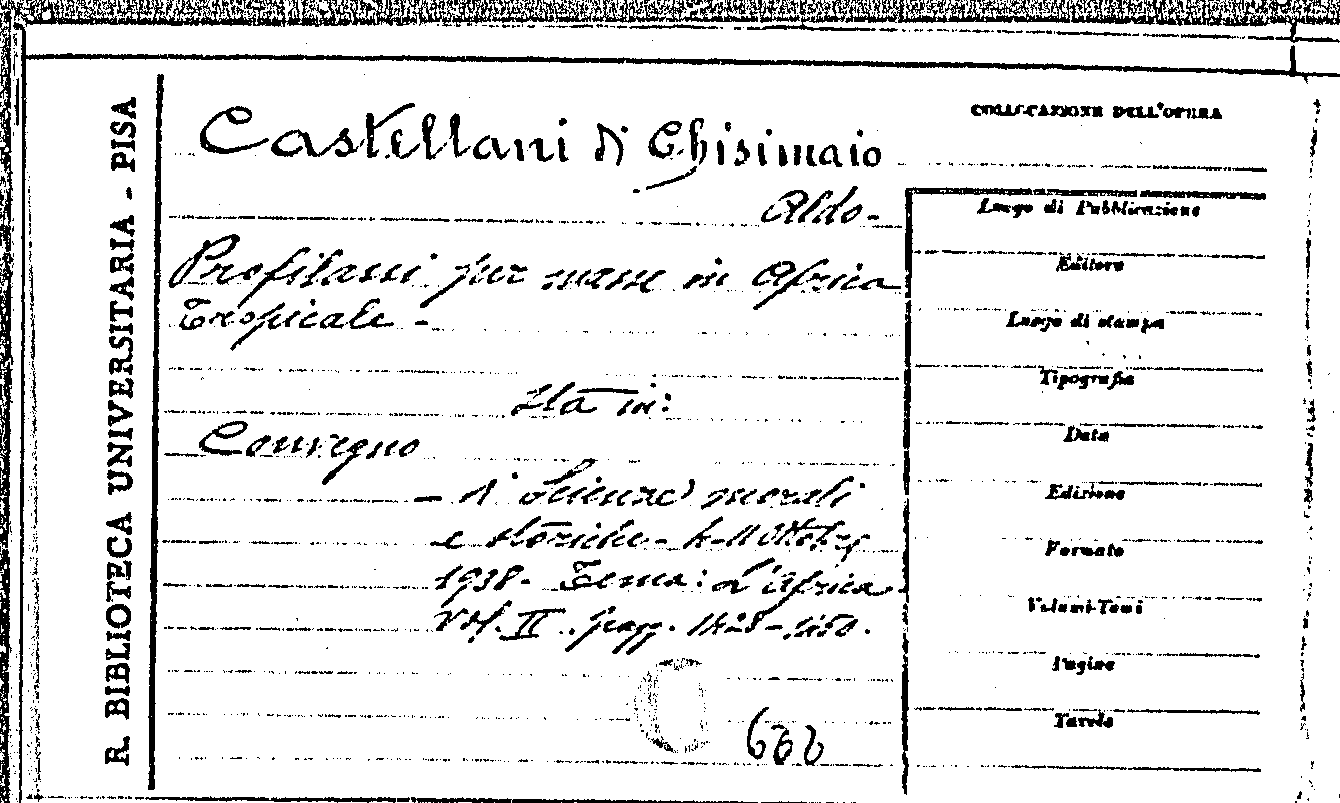 R. BIBLIOTECA UNIVERSITARIA - PISA
Castellani di Chisimaio
Aldo-
Profilassi per masse in Africa
Tropicale -
Sta in:
Convegno
- di Scienze morali
e storiche - 4-11 Ottobre
1938 - Tema: L'Africa.
Vol. II. pagg.
COLLOCAZIONE DELL'OPERA
Luogo di Pubblicazione
Editore
Luogo di stampa
Tipografia
Data
Edizione
Formato
Volumi-Tomi
Pagine
Tavole